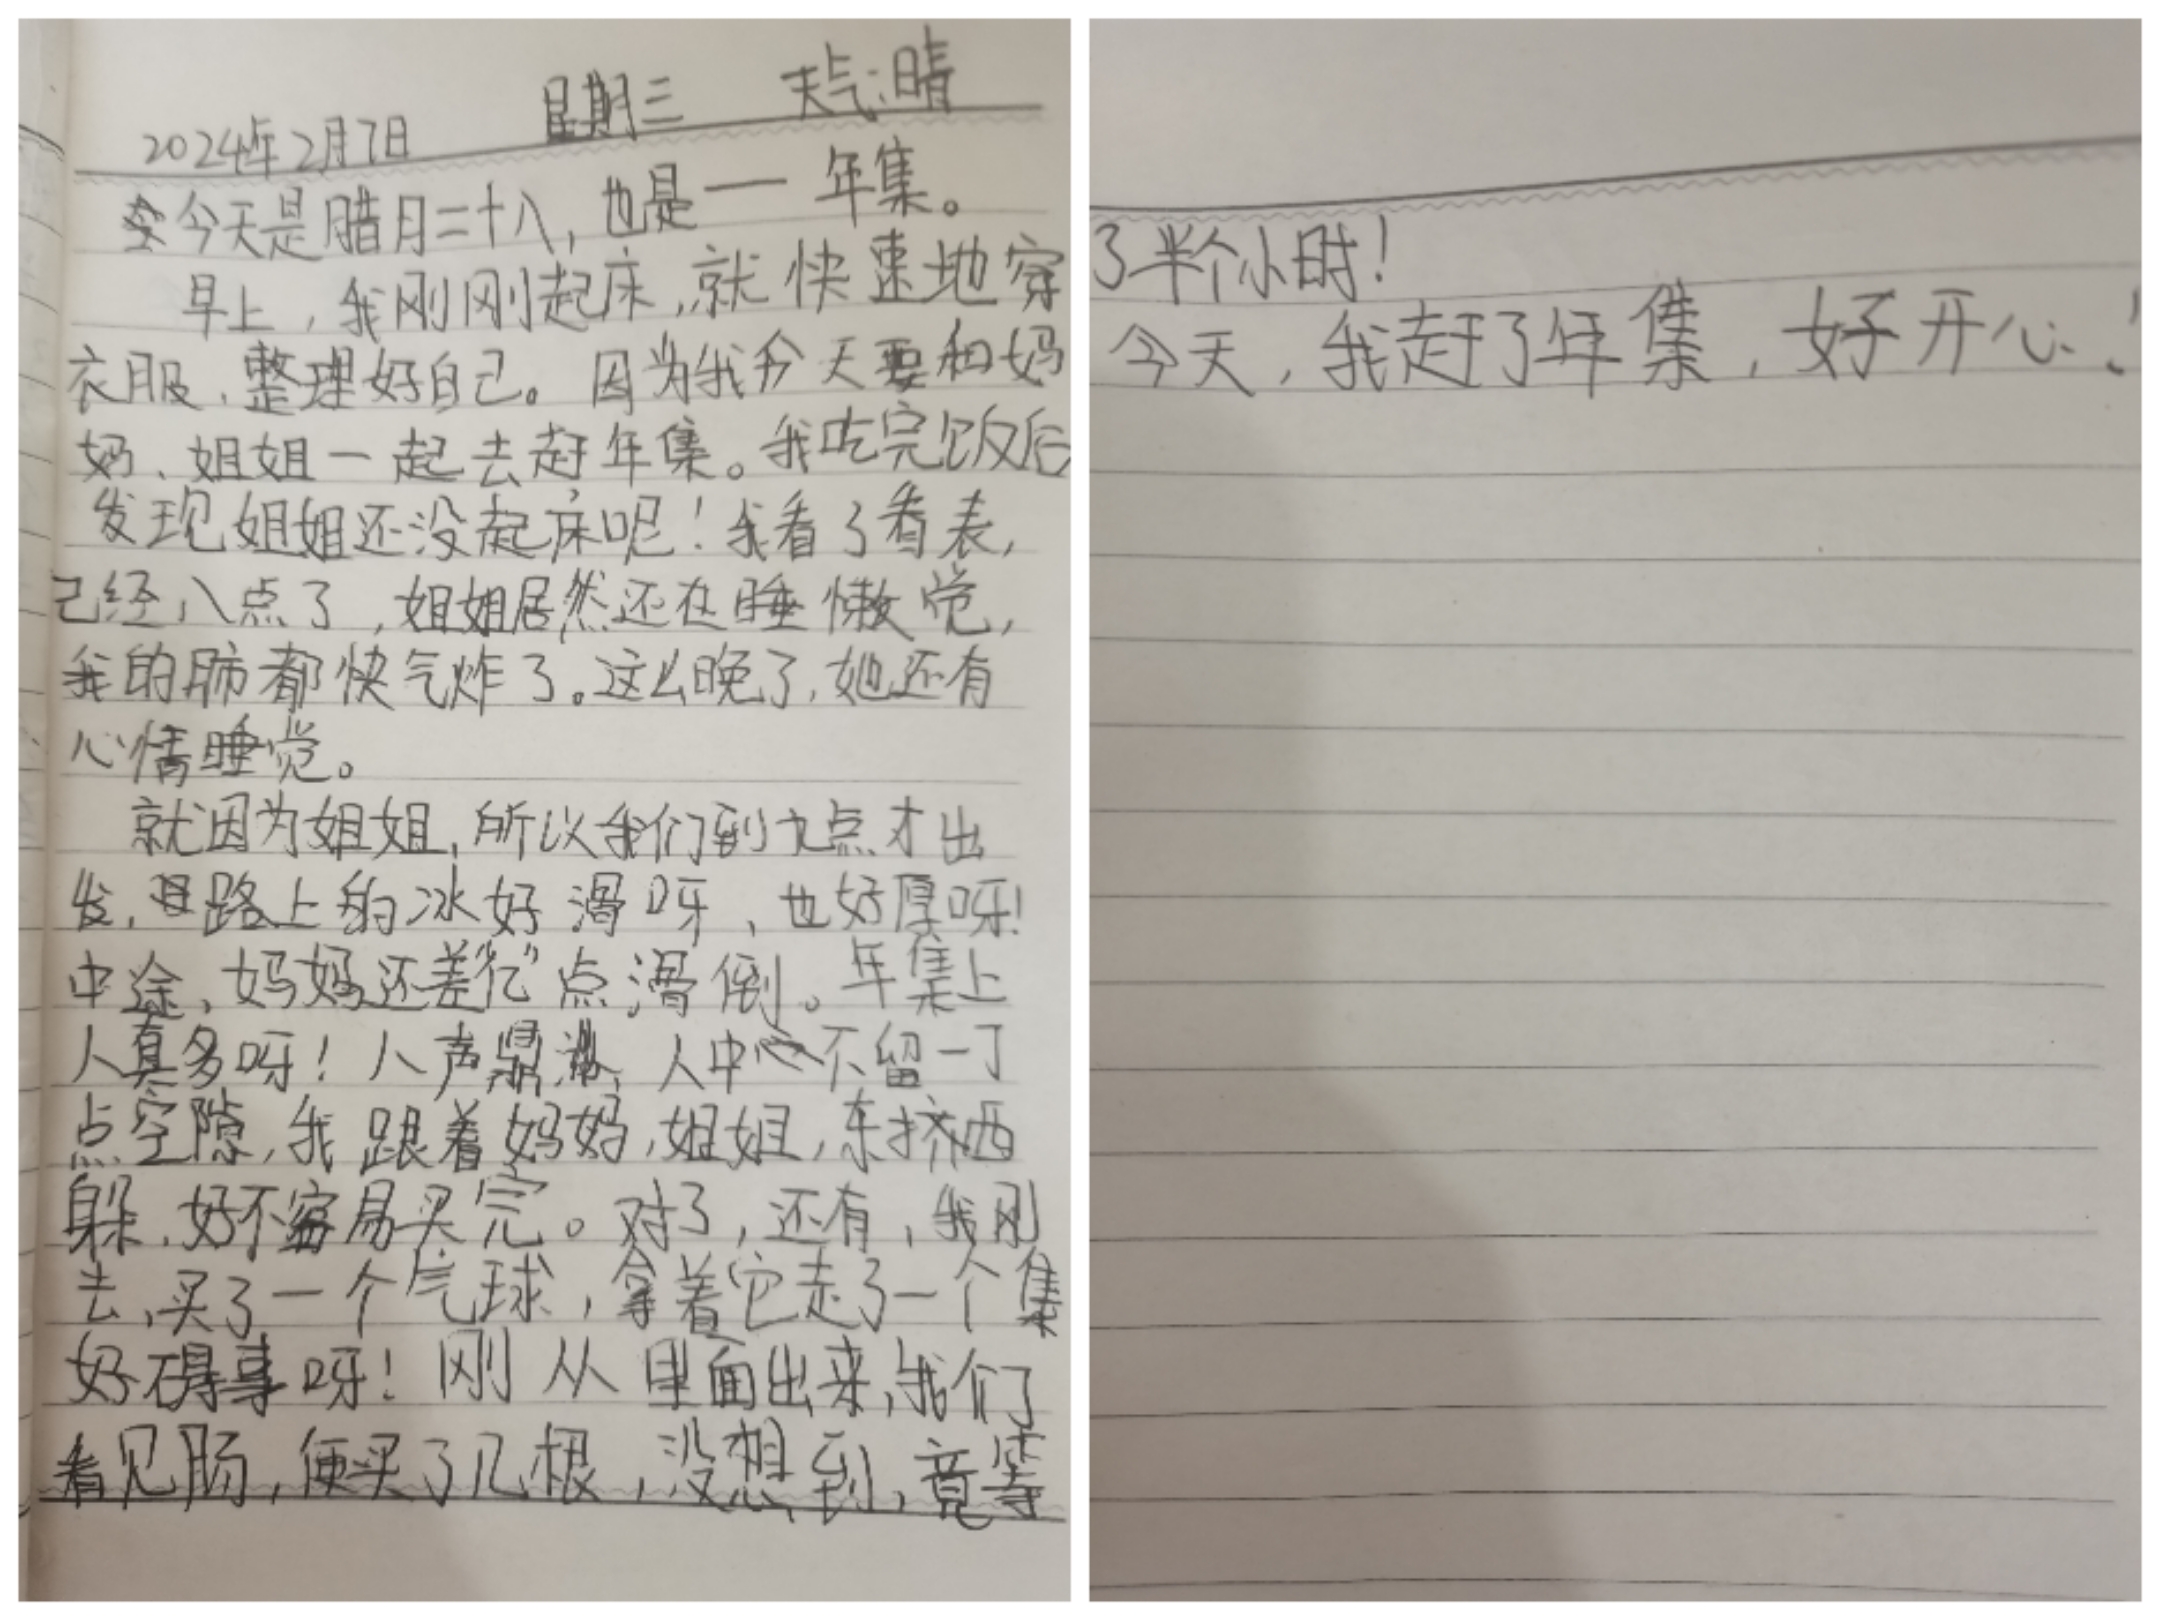 2024年2月7日 星期三 天气:晴
今天是腊月二十八,也是一年集。
早上,我刚刚起床,就快速地穿
衣服,整理好自己。因为我今天要和妈
妈、姐姐一起去赶年集。我吃完饭后
发现姐姐还没起床呢!我看了看表,
已经八点了,姐姐居然还在睡懒觉,
我的肺都快气炸了。这么晚了,她还有
心情睡觉。
就因为姐姐,所以我们到九点才出
发,路上的冰好滑呀,也好厚呀!
中途,妈妈还差点滑倒。年集上
人真多呀!人声鼎沸,人中不留一丁
点空隙,我跟着妈妈,姐姐,东挤西
躲,好不容易买完。对了,还有,我刚
去,买了一个气球,拿着它走了一个集
好碍事呀!刚从里面出来,我们
看见肠,便买了几根,没想到,竟等
了半个小时!
今天,我赶了年集,好开心!